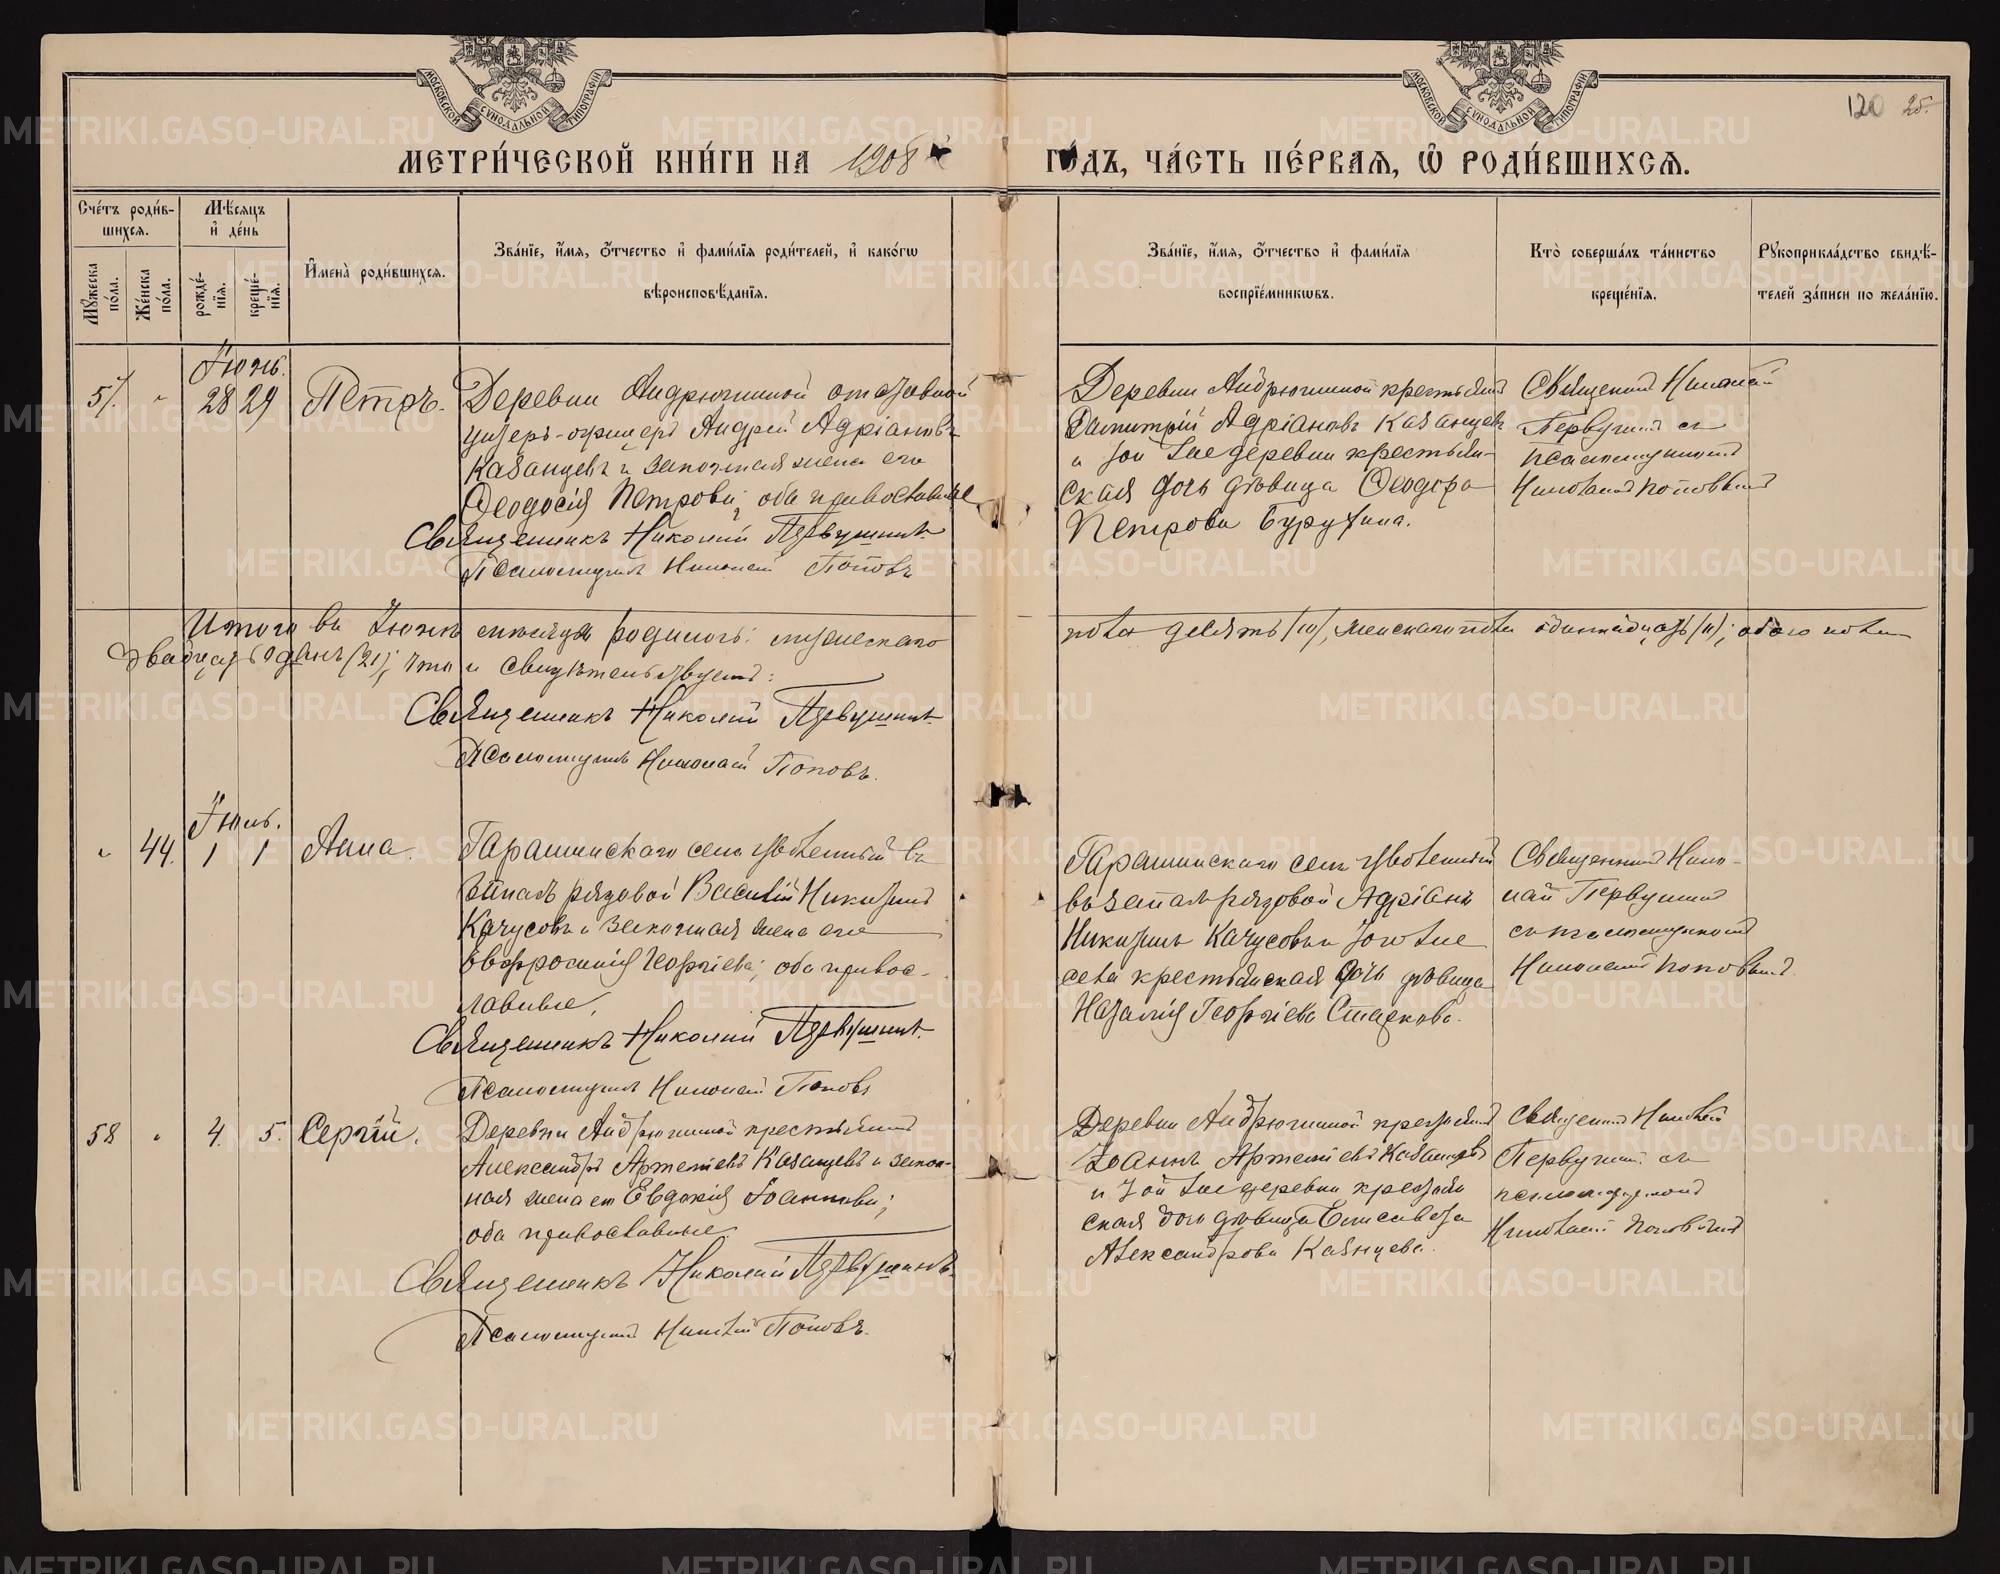 МОСКОВСКОЙ СѴНОДАЛЬНОЙ ТИПОГРАФІИ
МОСКОВСКОЙ СѴНОДАЛЬНОЙ ТИПОГРАФІИ
120 25
МЕТРИ́ЧЕСКОЙ КНИ́ГИ НА 1908 й ГО́ДЪ, ЧА́СТЬ ПЕ́РВАЯ, Ѡ РОДИ́ВШИХСЯ.
Сче́тъ роди́в-
шихся.
Мѣ́сяцъ
и҆ де́нь
Мꙋ́жеска
по́ла.
Же́нска
по́ла.
рожде́-
нїя.
креще́-
нїя.
И҆мена̀ роди́вшихся.
Зва́нїе, и҆́мя, ѻ҆́тчество и҆ фами́лїя роди́телей, и҆ како́гѡ
вѣроисповѣ́данїя.
Зва́нїе, и҆́мя, ѻ҆́тчество и҆ фами́лїя
воспрїе́мникѡвъ.
Кто̀ соверша́лъ та́инство
креще́нїя.
Рꙋкоприкла́дство свидѣ́-
телей за́писи по жела́нїю.
Іюнь.
57. " 28 29 Петръ.
Деревни Андрюшиной отставной
унтеръ-офицеръ Андрей Адріановъ
Казанцевъ и законная жена его
Ѳеодосія Петрова; оба православные
Священникъ Николай Первушинъ
Псаломщикъ Николай Поповъ
Деревни Андрюшиной крестьянинъ
Димитрій Адріановъ Казанцевъ
и той же деревни крестьян-
ская дочь дѣвица Ѳеодора
Петрова Бурухина.
Священникъ Николай
Первушинъ съ
псаломщикомъ
Николаемъ Поповымъ
Итого въ Іюнѣ мѣсяцѣ родилось: мужескаго пола десять (10), женскаго пола одиннадцать (11); обоего пола
двадцать одинъ (21); что и свидѣтельствуемъ:
Священникъ Николай Первушинъ
Псаломщикъ Николай Поповъ.
Іюль.
" 44. 1 1 Анна.
Гарашинскаго села уволенный въ
запасъ рядовой Василій Никитинъ
Качусовъ и законная жена его
Евфросинія Георгіева; оба правос-
лавные.
Священникъ Николай Первушинъ.
Псаломщикъ Николай Поповъ
Гарашинскаго села уволенный
въ запасъ рядовой Адріанъ
Никитинъ Качусовъ и того же
села крестьянская дочь дѣвица
Наталія Георгіева Старкова.
Священникъ Нико-
лай Первушинъ
съ псаломщикомъ
Николаемъ Поповымъ.
58 " 4. 5. Сергій.
Деревни Андрюшиной крестьянинъ
Александръ Артеміевъ Казанцевъ и закон-
ная жена его Евдокія Іоаннова;
оба православные.
Священникъ Николай Первушинъ.
Псаломщикъ Николай Поповъ.
Деревни Андрюшиной крестьянинъ
Іоаннъ Артеміевъ Казанцевъ
и той же деревни крестьян
ская дочь дѣвица Елисавета
Александрова Казанцева.
Священникъ Николай
Первушинъ съ
псаломщикомъ
Николаемъ Поповымъ
METRIKI.GASO-URAL.RU